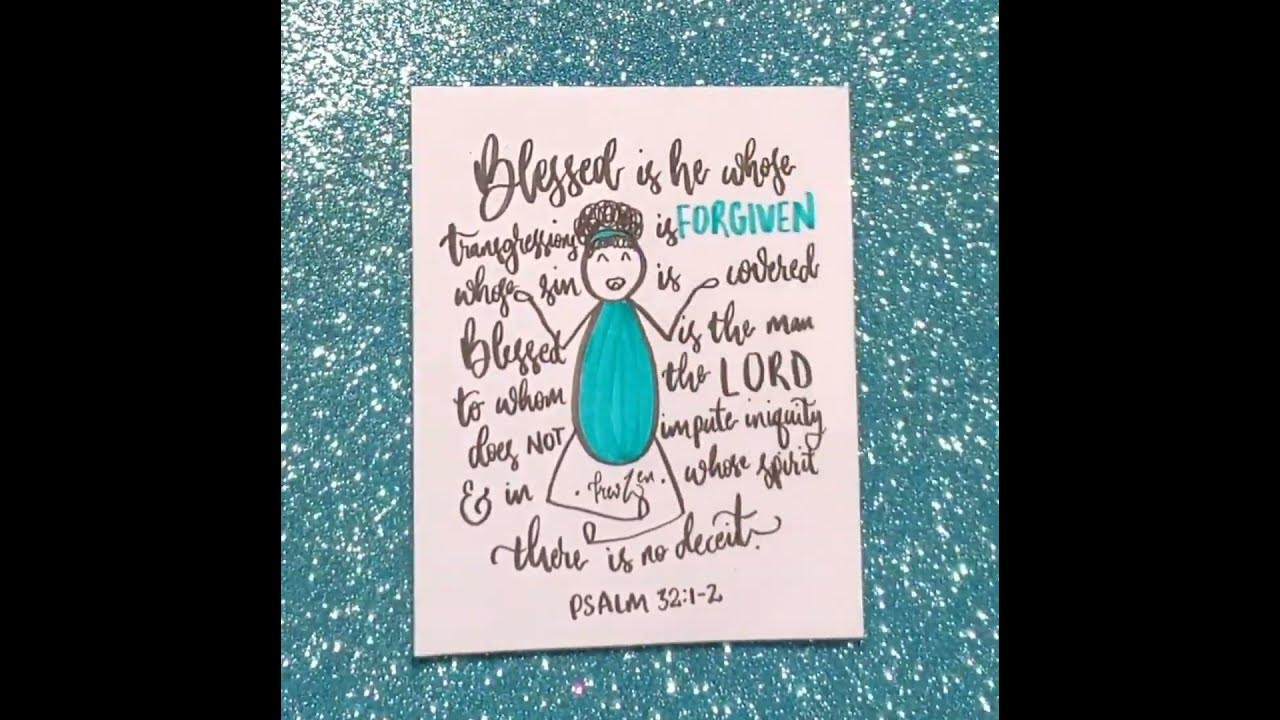 Blessed is he whose
transgressions is FORGIVEN
whose sin is covered
Blessed is the man
to whom the LORD
does NOT impute iniquity
& in whose spirit
there is no deceit.
PSALM 32:1-2